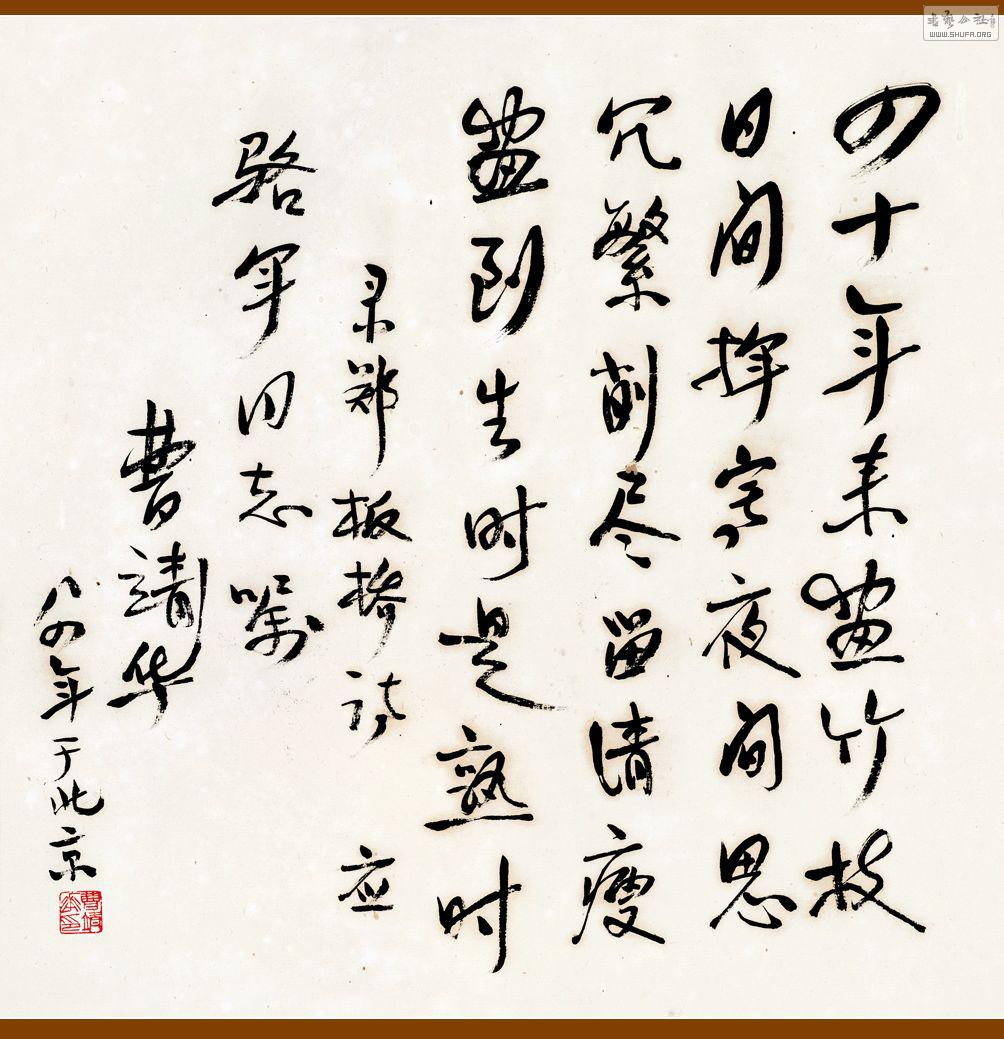 四十年来画竹枝
日间挥写夜间思
冗繁削尽留清瘦
画到生时是熟时
录郑板桥诗 应
骆军同志嘱
曹靖华
八四年于北京
曹靖华印
书艺公社
WWW.SHUFA.ORG